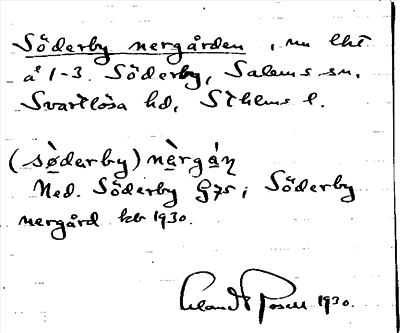 Söderby nergården, nu lht
å 1-3. Söderby, Salems sn,
Svartlösa hd, Sthlms l.
(sø̀derby) nè̤rgá̤ṇ
Med. Söderby G75, i Söderby
nergård kb 1930.
1930.